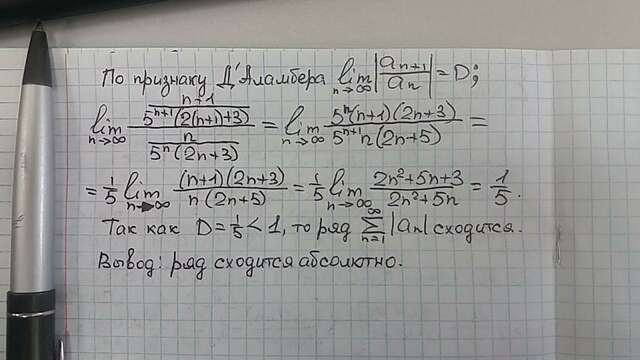 По признаку Д'Аламбера lim n→∞ |aₙ₊₁/aₙ| = D;
lim n→∞ ((n+1)/(5ⁿ⁺¹(2(n+1)+3)))/(n/(5ⁿ(2n+3))) = lim n→∞ (5ⁿ(n+1)(2n+3))/(5ⁿ⁺¹n(2n+5)) =
= 1/5 lim n→∞ ((n+1)(2n+3))/(n(2n+5)) = 1/5 lim n→∞ (2n²+5n+3)/(2n²+5n) = 1/5.
Так как D = 1/5 < 1, то ряд ∑ n=1 ∞ |aₙ| сходится.
Вывод: ряд сходится абсолютно.